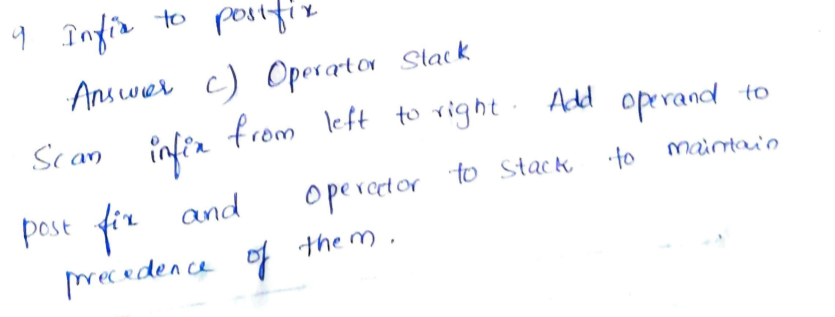 9 Infix to postfix
Answer c) Operator Stack
Scan infix from left to right. Add operand to
post fix and operator to stack to maintain
precedence of them.